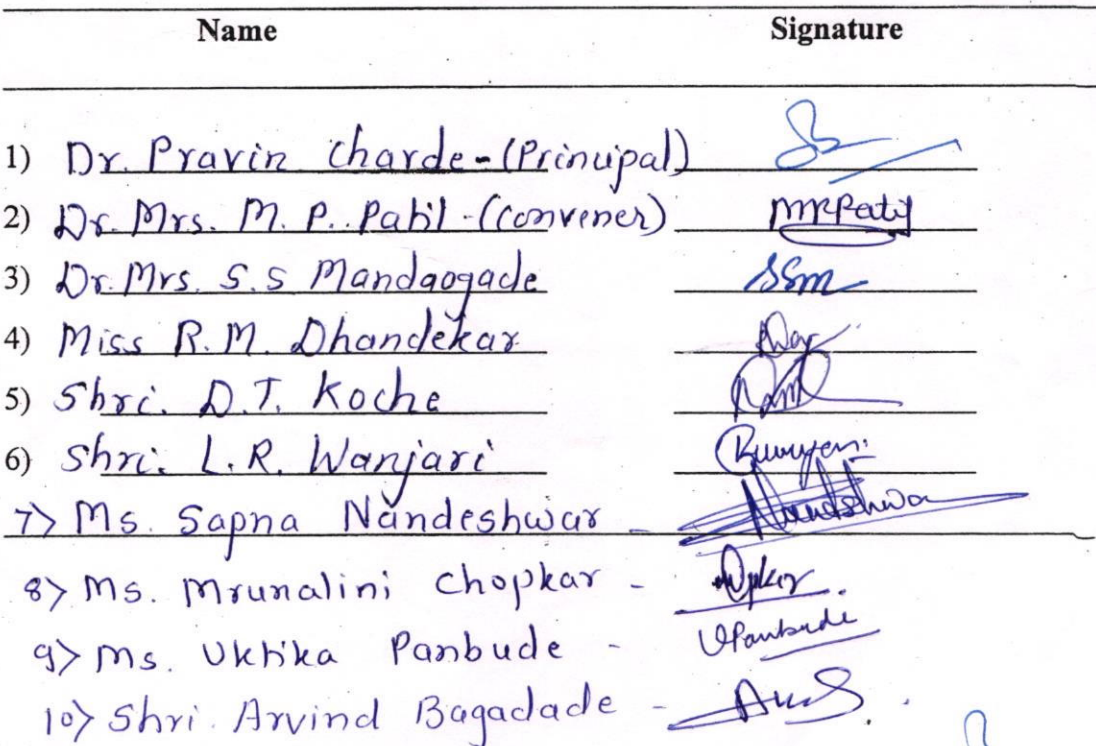 Name Signature
1) Dr. Pravin Charde - (Principal)
2) Dr. Mrs. M. P. Patil - (Convener) MPPatil
3) Dr. Mrs. S.S Mandaogade SSm
4) Miss R.M. Dhandekar
5) Shri. D.T. Koche
6) Shri. L.R. Wanjari
7) Ms. Sapna Nandeshwar - Nandshwar
8) Ms. Mrunalini Chopkar -
9) Ms. Uktika Panbude - UPanbude
10) Shri. Arvind Bagadade -